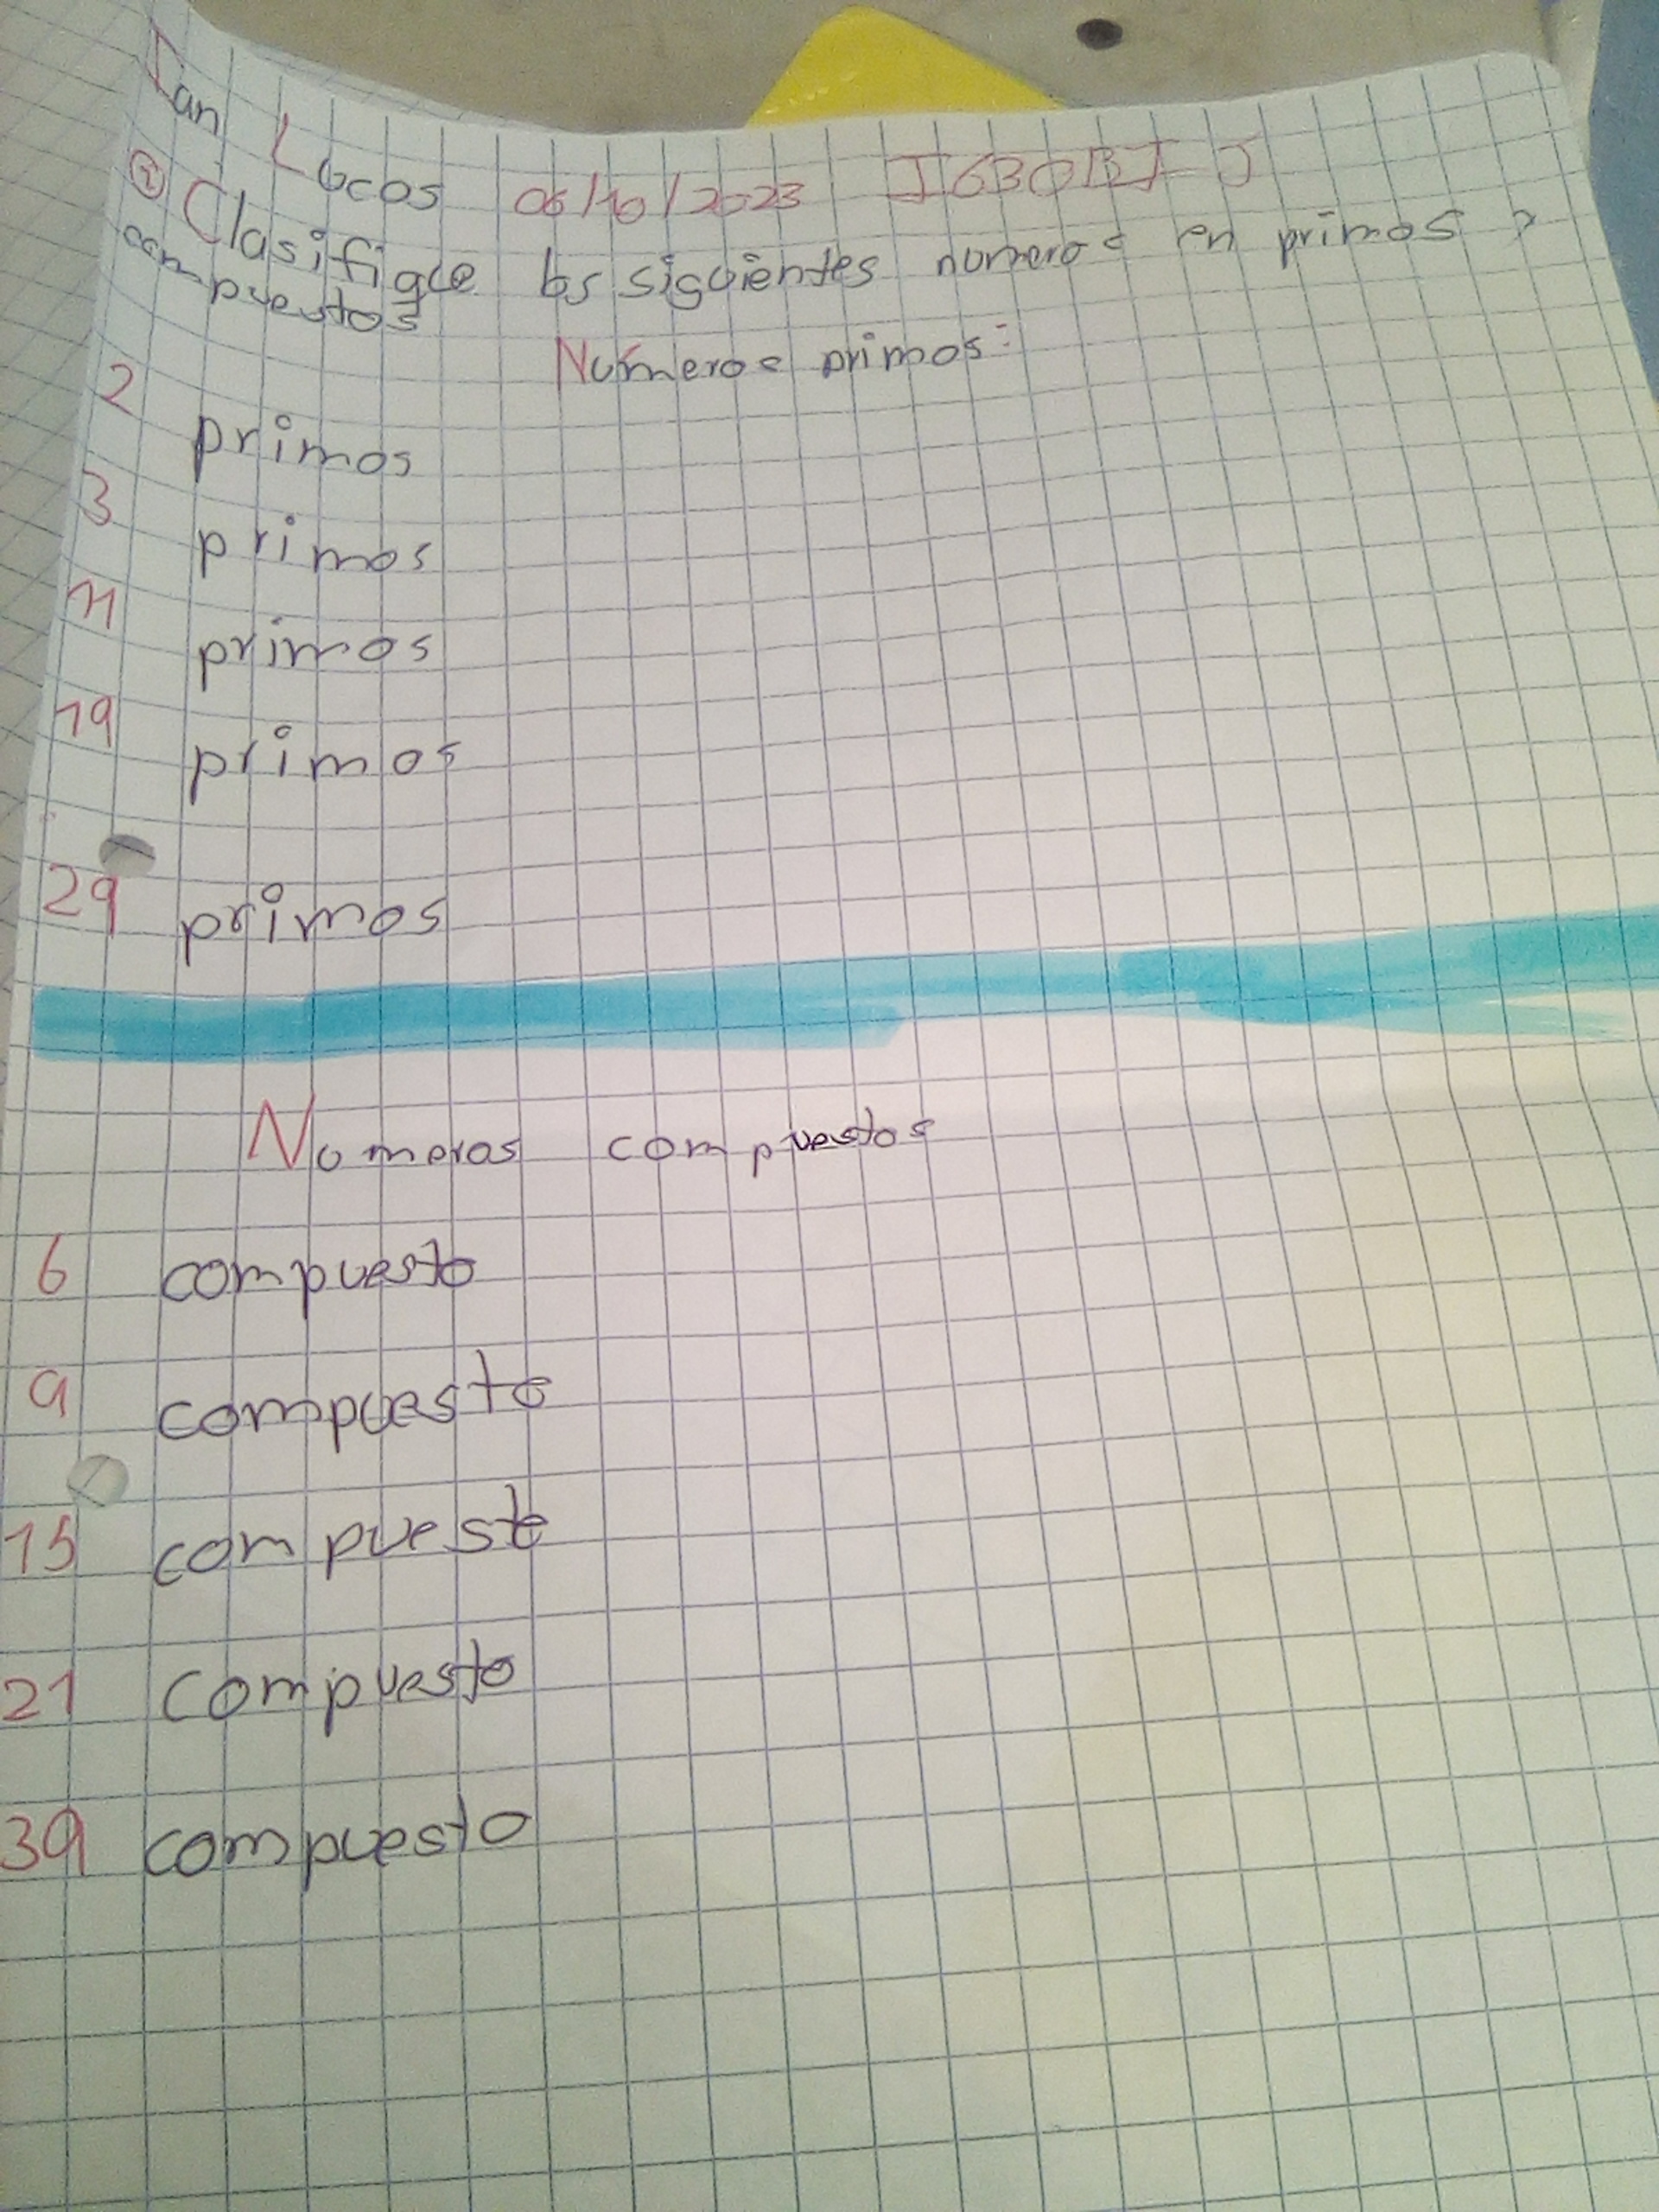 Ian Lucas 06/10/2023
① Clasifique los siguientes numeros en primos y
compuestos
Números primos:
2 primos
3 primos
11 primos
19 primos
29 primos
Numeros compuestos
6 compuesto
9 compuesto
15 compuesto
21 compuesto
39 compuesto